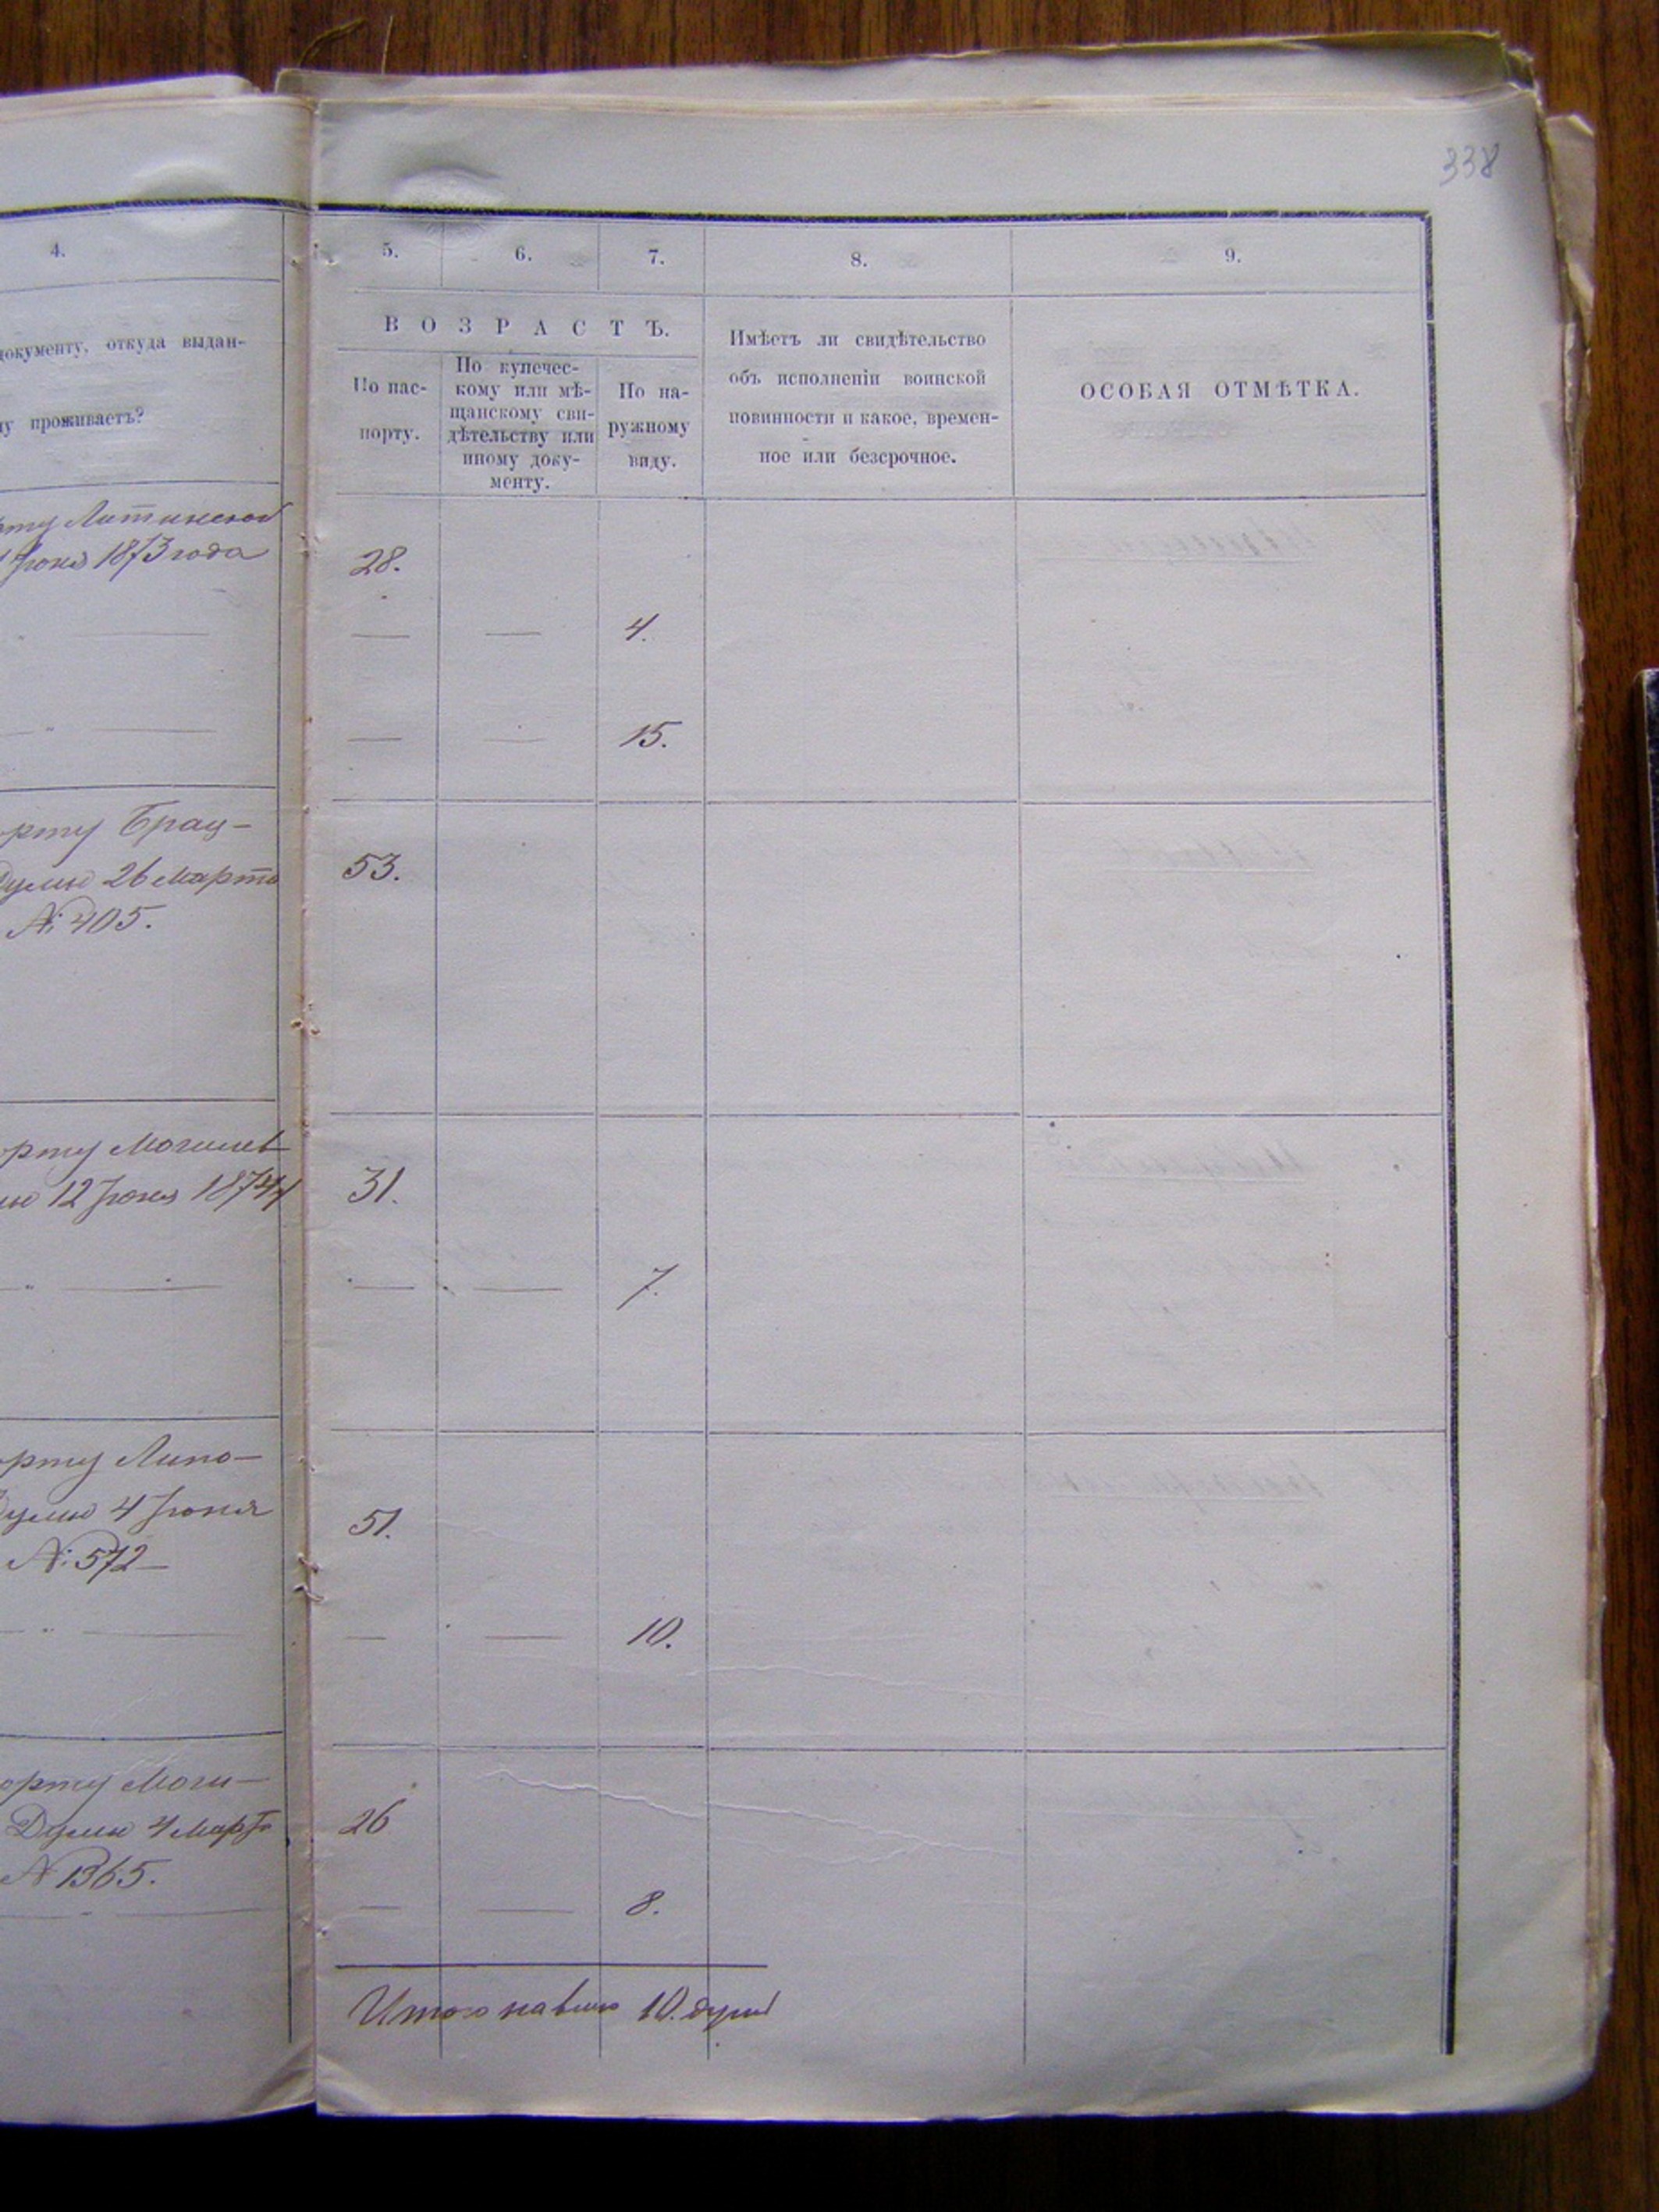 338
4.
документу, откуда выдан-
му проживаетъ?
5.
6.
7.
8.
9.
ВОЗРАСТЪ.
По пас-
порту.
По купечес-
кому или мѣ-
щанскому сви-
дѣтельству или
иному доку-
менту.
По на-
ружному
виду.
Имѣетъ ли свидѣтельство
объ исполненіи воинской
повинности и какое, времен-
ное или безсрочное.
ОСОБАЯ ОТМѢТКА.
рту Литинской
Іюня 1873 года
28.
— — 4.
— — 15.
орту Брац-
Думы 26 Марта
№ 405.
53.
орту Могилев
ы 12 Іюня 1874
31.
— — 7.
орту Липо-
Думы 4 Іюня
№ 572
51.
— — 10.
орту Моги-
Думы 4 Марта
№ 1365.
26
— — 8.
Итого 10. душ